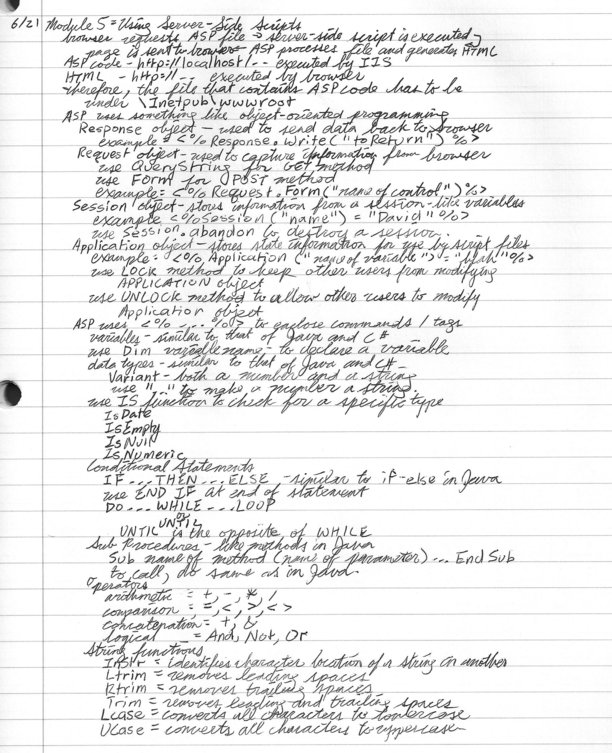 6/21 Module 5 = Using Server-Side Scripts
browser requests ASP file → server-side script is executed →
page is sent to browser ASP processes file and generates HTML
ASP code - http://localhost/-- executed by IIS
HTML - http://-- executed by browser
therefore, the file that contains ASP code has to be
under \Inetpub\wwwroot
ASP uses something like object-oriented programming
Response object - used to send data back to browser
example = <% Response.Write("to Return") %>
Request object - used to capture information from browser
use QueryString for GET method
use Form for POST method
example = <% Request.Form("name of control") %>
Session object - stores information from a session - like variables
example <% Session("name") = "David" %>
use Session.abandon to destroy a session.
Application object - stores state information for use by script files
example = <% Application ("name of variable") = %>
use LOCK method to keep other users from modifying
APPLICATION object
use UNLOCK method to allow other users to modify
Application object
ASP uses <% ... %> to enclose commands / tags
variables - similar to that of Java and C#
use Dim variable name - to declare a variable
data types - similar to that of Java and C#
Variant - both a number and a string
use "..." to make a number a string.
use IS function to check for a specific type
IsDate
IsEmpty
IsNull
IsNumeric
Conditional Statements
IF ... THEN ... ELSE - similar to if-else in Java
use END IF at end of statement
DO ... WHILE ... LOOP
or
UNTIL
UNTIL is the opposite of WHILE
Sub Procedures - like methods in Java
Sub name of method (name of parameter) ... End Sub
to call, do same as in Java.
Operators
arithmetic = +, -, *, /
comparison = =, <, >, <>
concatenation = +, &
logical = And, Not, Or
String functions
InStr = identifies character location of a string in another
Ltrim = removes leading spaces
Rtrim = removes trailing spaces
Trim = removes leading and trailing spaces
Lcase = converts all characters to lowercase
Ucase = converts all characters to uppercase